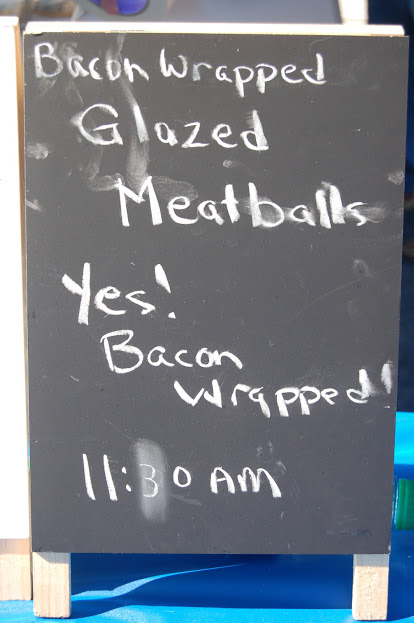 Bacon Wrapped
Glazed
Meatballs
Yes!
Bacon
Wrapped!
11:30 AM